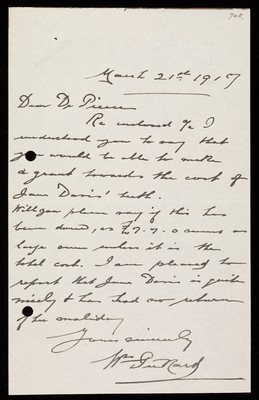 March 21st 1917
Dear Dr Pierce
Re enclosed a/c I
understood you to say that
you would be able to make
a grant towards the cost of
Jane Davis' teeth.
Will you please say if this has
been done, as £7.7.0 seems a
large sum unless it is the
total cost. I am pleased to
report that Jane Davis is quite
nicely & has had no return
of her malady
Yours sincerely
Wm